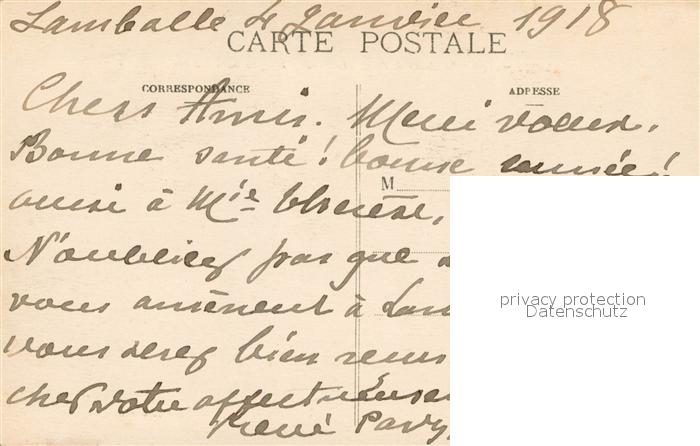 Lamballe 4 Janvier 1918
CARTE POSTALE
CORRESPONDANCE
ADRESSE
Chers Amis. Meni voeux.
Bonne santé! bonne année!
aussi à Mie Thérèse,
M
N'oubliez pas que
vous amènent à Lam
vous serez bien reçus
chez votre affectueuse
René Pavy
privacy protection
Datenschutz